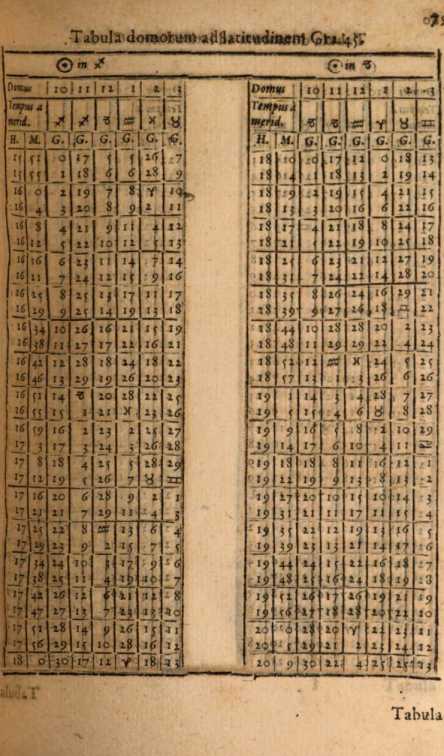 Tabula domorum ad latitudinem Gra. 45.
☉ in ♐
Domus 10 11 12 1 2 3
Tempus a merid. ♐ ♐ ♑ ♒ ♓ ♉
H. M. G. G. G. G. G. G.
15 51 0 17 5 5 26 7
15 55 1 18 6 6 28 9
16 0 2 19 7 8 ♈ 10
16 4 3 20 8 9 2 11
16 8 4 21 9 11 4 12
16 12 5 22 10 12 5 13
16 16 6 23 11 14 7 14
16 21 7 24 12 15 9 16
16 25 8 25 13 17 11 17
16 29 9 25 14 19 13 18
16 34 10 26 16 21 15 19
16 38 11 27 17 22 16 21
16 42 12 28 18 24 18 22
16 46 13 29 19 26 20 23
16 51 14 ♑ 20 28 22 25
16 55 15 1 21 ♓ 23 26
16 59 16 2 23 2 25 27
17 3 17 3 24 3 26 28
17 8 18 4 25 5 28 29
17 12 19 5 26 7 ♉ ♊
17 16 20 6 28 9 2 1
17 21 21 7 29 11 4 3
17 25 22 8 ♒ 13 6 4
17 29 23 9 2 15 7 5
17 34 24 10 3 17 9 6
17 38 25 11 4 19 10 7
17 42 26 12 6 21 12 8
17 47 27 13 7 23 13 10
17 51 28 14 9 26 15 11
17 56 29 15 10 28 16 12
18 0 30 17 12 ♈ 18 13
☉ in ♑
Domus 10 11 12 1 2 3
Tempus a merid. ♑ ♑ ♒ ♈ ♉ ♊
H. M. G. G. G. G. G. G.
18 0 0 17 12 0 18 13
18 4 1 18 13 2 19 14
18 9 2 19 15 4 21 15
18 13 3 20 16 6 22 16
18 17 4 21 18 8 24 17
18 21 5 22 19 10 25 18
18 25 6 23 21 12 27 19
18 31 7 24 22 14 28 20
18 35 8 26 24 16 29 21
18 39 9 27 26 18 ♊ 22
18 44 10 28 28 20 2 23
18 48 11 29 29 22 4 24
18 52 12 ♒ ♓ 24 5 25
18 57 13 1 3 26 6 26
19 1 14 3 4 28 7 27
19 5 15 4 6 ♉ 8 28
19 9 16 5 8 2 10 29
19 14 17 6 10 4 11 ♋
19 18 18 8 11 16 12 1
19 22 19 9 13 8 13 2
19 27 20 10 15 10 14 3
19 31 21 11 17 11 15 4
19 35 22 12 19 13 16 5
19 39 23 13 21 14 17 6
19 44 24 15 22 16 18 7
19 48 25 16 24 18 19 8
19 52 26 17 26 19 21 9
19 56 27 18 28 20 22 10
20 0 28 20 ♈ 22 23 11
20 5 29 21 2 23 24 12
20 9 30 22 4 25 25 13
Tabula